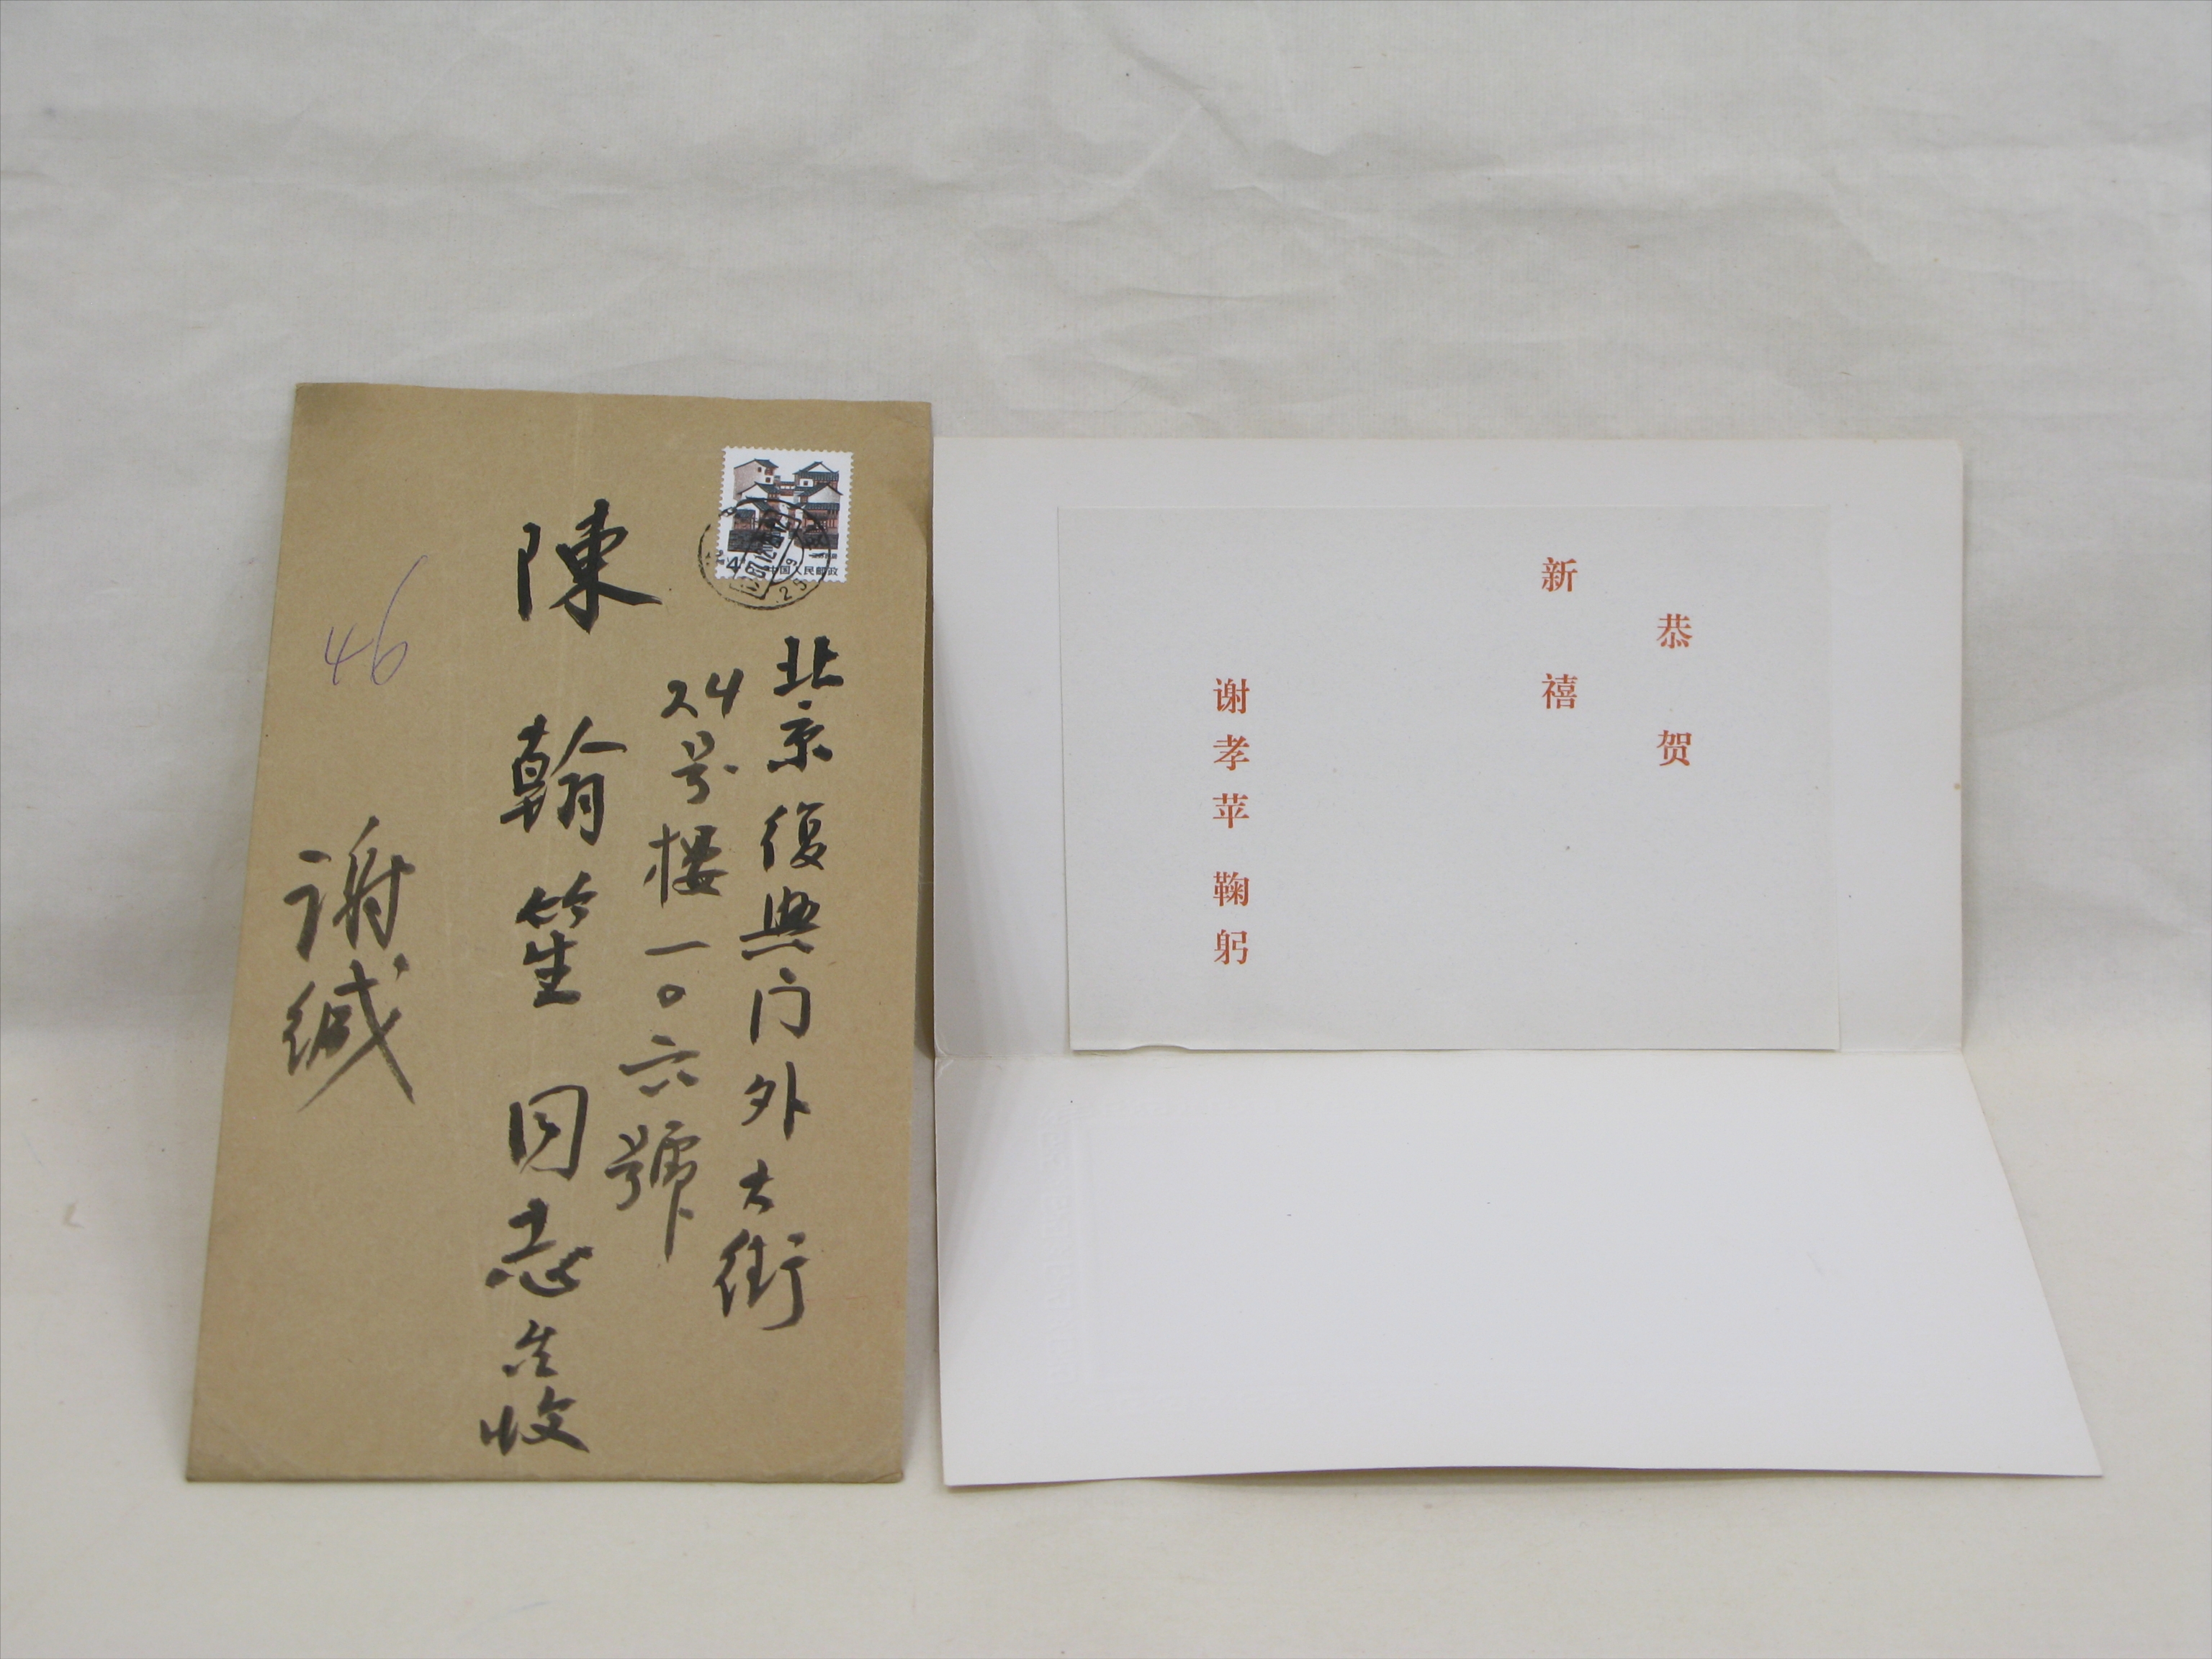 北京復興门外大街
24号楼一〇六號
陳翰笙同志台收
谢缄
46
4分
中国人民邮政
恭贺
新禧
谢孝苹 鞠躬